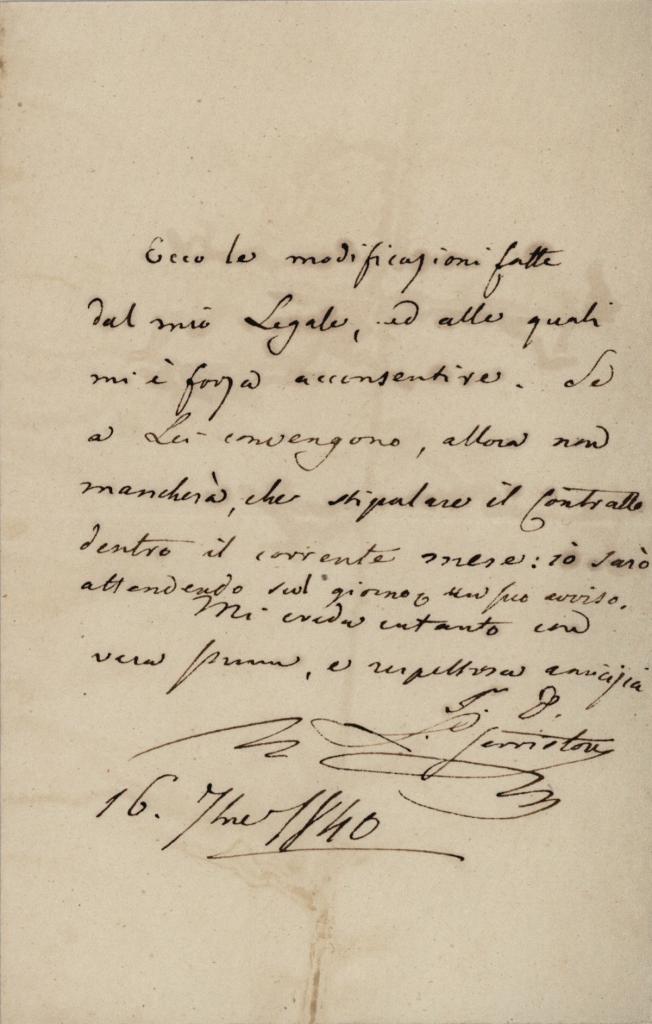 Ecco le modificazioni fatte
dal mio Legale, ed alle quali
mi è forza acconsentire. Se
a Lei convengono, allora non
mancherà, che stipulare il Contratto
dentro il corrente mese: io sarò
attendendo sul giorno un suo avviso.
Mi creda intanto con
vera stima, e rispettosa amicizia
L. Serristori
16. 7bre 1840